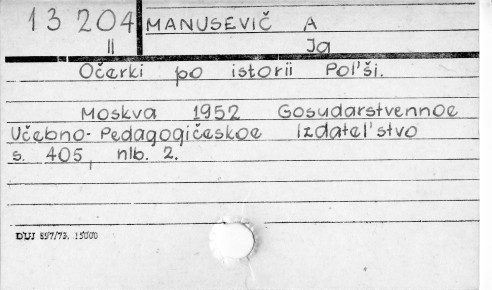 13 204 MANUSEVIČ A
II Ja
Očerki po istorii Pol'ši.
Moskva 1952 Gosudarstvennoe
Učebno-Pedagogičeskoe Izdatel'stvo
s. 405, nlb. 2.
DUJ 897/73. 15000